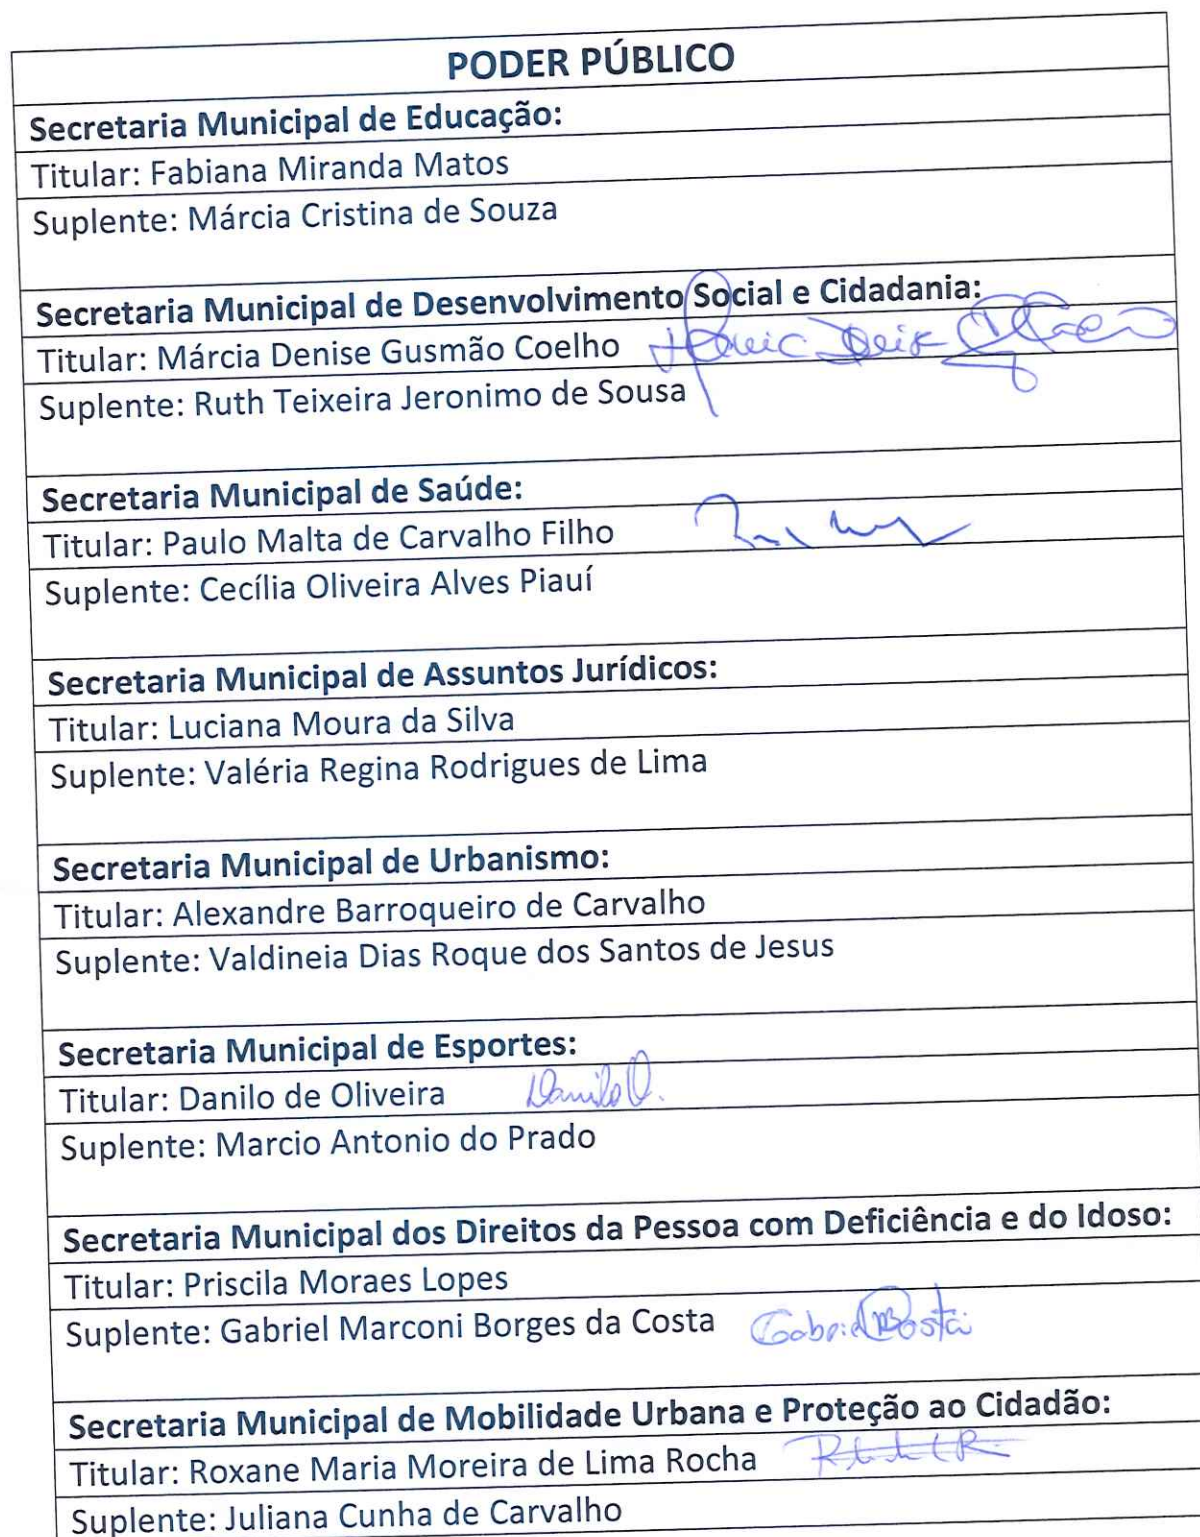 PODER PÚBLICO
Secretaria Municipal de Educação:
Titular: Fabiana Miranda Matos
Suplente: Márcia Cristina de Souza
Secretaria Municipal de Desenvolvimento Social e Cidadania:
Titular: Márcia Denise Gusmão Coelho
Suplente: Ruth Teixeira Jeronimo de Sousa
Secretaria Municipal de Saúde:
Titular: Paulo Malta de Carvalho Filho
Suplente: Cecília Oliveira Alves Piauí
Secretaria Municipal de Assuntos Jurídicos:
Titular: Luciana Moura da Silva
Suplente: Valéria Regina Rodrigues de Lima
Secretaria Municipal de Urbanismo:
Titular: Alexandre Barroqueiro de Carvalho
Suplente: Valdineia Dias Roque dos Santos de Jesus
Secretaria Municipal de Esportes:
Titular: Danilo de Oliveira Danilo O.
Suplente: Marcio Antonio do Prado
Secretaria Municipal dos Direitos da Pessoa com Deficiência e do Idoso:
Titular: Priscila Moraes Lopes
Suplente: Gabriel Marconi Borges da Costa Gabriel MB Costa
Secretaria Municipal de Mobilidade Urbana e Proteção ao Cidadão:
Titular: Roxane Maria Moreira de Lima Rocha
Suplente: Juliana Cunha de Carvalho